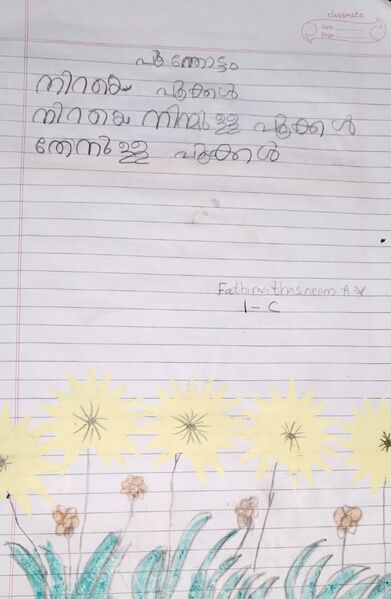 classmate
Date
Page
പൂന്തോട്ടം
നിറയെ പൂക്കൾ
നിറയെ നിറമുള്ള പൂക്കൾ
തേനുള്ള പൂക്കൾ
Fathimathasneem A.
1-C